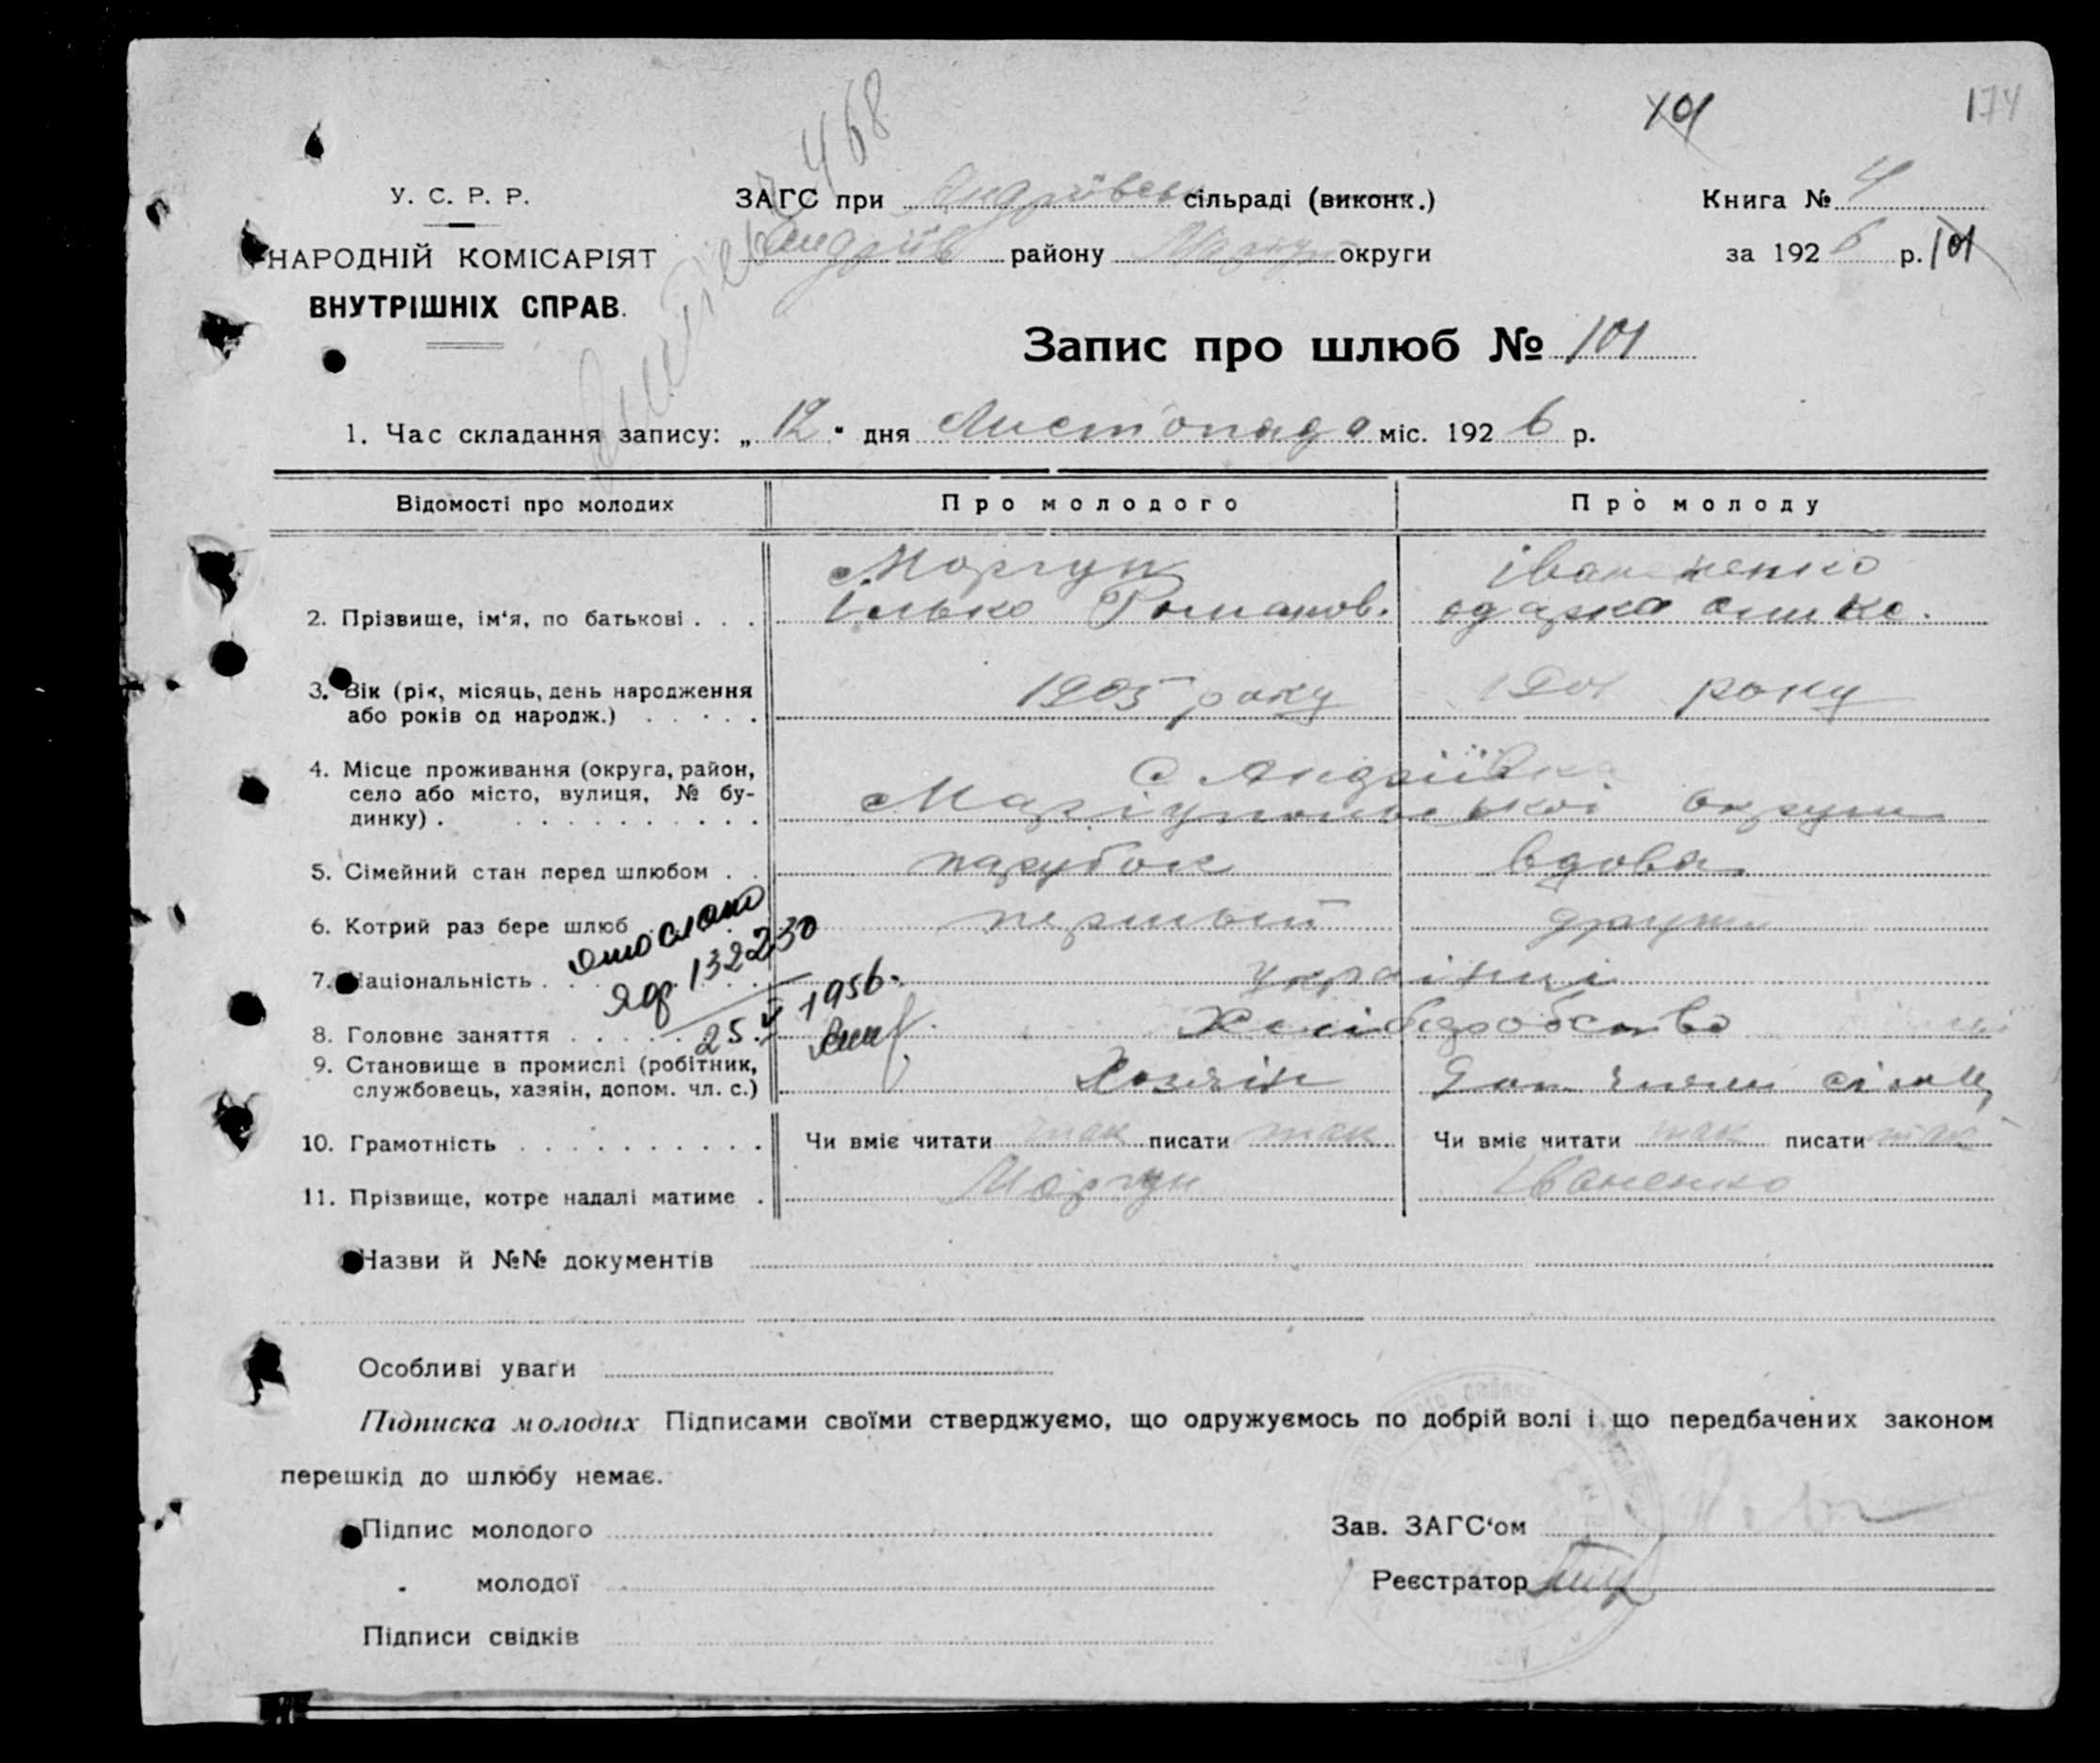 468
101 174
У. С. Р. Р.
НАРОДНІЙ КОМІСАРІЯТ
ВНУТРІШНІХ СПРАВ.
ЗАГС при Андріївсь сільраді (виконк.)
Андріїв району Маріуп округи
Книга № 4
за 1926 р. 101
Запис про шлюб № 101
1. Час складання запису: „12" дня Листопада міс. 1926 р.
Відомості про молодих Про молодого Про молоду
2. Прізвище, ім'я, по батькові . . . Моргун Ілько Романов. одарка
3. Вік (рік, місяць, день народження
або років од народж.) . . . . . 1905 року року
4. Місце проживання (округа, район,
село або місто, вулиця, № бу-
динку) . . . . . . . . . . . С Андріївка
Маріупольської округи
5. Сімейний стан перед шлюбом . . парубок вдова
6. Котрий раз бере шлюб первый
7. Національність . українці
отослано
132230
25 V 1956.
8. Головне заняття . . . . . Хліборобство
9. Становище в промислі (робітник,
службовець, хазяін, допом. чл. с.) Хозяін
10. Грамотність . . . . . . . . . . Чи вміє читати так писати так Чи вміє читати так писати так
11. Прізвище, котре надалі матиме . Моргун Іваненко
Назви й №№ документів
Особливі уваги
Підписка молодих Підписами своїми стверджуємо, що одружуємось по добрій волі і що передбачених законом
перешкід до шлюбу немає.
Підпис молодого
Зав. ЗАГС'ом
" молодої
Реєстратор
Підписи свідків